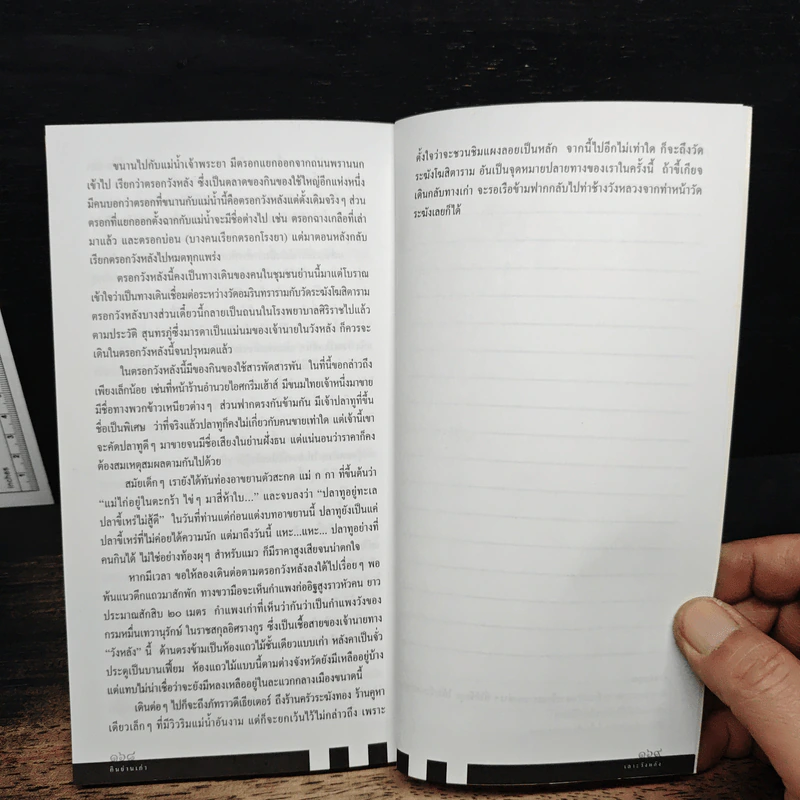 ขนานไปกับแม่น้ำเจ้าพระยา มีตรอกแยกออกจากถนนพรานนก
เข้าไป เรียกว่าตรอกวังหลัง ซึ่งเป็นตลาดของกินของใช้ใหญ่อีกแห่งหนึ่ง
มีคนบอกว่าตรอกที่ขนานกับแม่น้ำนี้คือตรอกวังหลังแต่ดั้งเดิมจริงๆ ส่วน
ตรอกที่แยกออกตั้งฉากกับแม่น้ำจะมีชื่อต่างไป เช่น ตรอกฉางเกลือที่เล่า
มาแล้ว และตรอกบ่อน (บางคนเรียกตรอกโรงยา) แต่มาตอนหลังกลับ
เรียกตรอกวังหลังไปหมดทุกแพร่ง
ตรอกวังหลังนี้คงเป็นทางเดินของคนในชุมชนย่านนี้มาแต่โบราณ
เข้าใจว่าเป็นทางเดินเชื่อมต่อระหว่างวัดอมรินทรารามกับวัดระฆังโฆสิตาราม
ตรอกวังหลังบางส่วนเดี๋ยวนี้กลายเป็นถนนในโรงพยาบาลศิริราชไปแล้ว
ตามประวัติ สุนทรภู่ซึ่งมารดาเป็นแม่นมของเจ้านายในวังหลัง ก็ควรจะ
เดินในตรอกวังหลังนี้จนปรุหมดแล้ว
ในตรอกวังหลังนี้มีของกินของใช้สารพัดสารพัน ในที่นี้ขอกล่าวถึง
เพียงเล็กน้อย เช่นที่หน้าร้านอำนวยไอศกรีมเฮ้าส์ มีขนมไทยเจ้าหนึ่งมาขาย
มีชื่อทางพวกข้าวเหนียวต่างๆ ส่วนฟากตรงกันข้ามกัน มีเจ้าปลาทูที่ขึ้น
ชื่อเป็นพิเศษ ว่าที่จริงแล้วปลาทูก็คงไม่เกี่ยวกับคนขายเท่าใด แต่เจ้านี้เขา
จะคัดปลาทูดีๆ มาขายจนมีชื่อเสียงในย่านฝั่งธน แต่แน่นอนว่าราคาก็คง
ต้องสมเหตุสมผลตามกันไปด้วย
สมัยเด็กๆ เราย่อได้ทันท่องอาขยานตัวสะกด แม่ ก กา ที่ขึ้นต้นว่า
“แม่ไก่อยู่ในตะกร้า ไข่ๆ มาสี่ห้าใบ...” และจบลงว่า “ปลาทูอยู่ทะเล
ปลาขี้เหร่ไม่สู้ดี” ในวันที่ท่านแต่ก่อนแต่งบทอาขยานนี้ ปลาทูยังเป็นแค่
ปลาขี้เหร่ที่ไม่ค่อยได้ความนัก แต่มาถึงวันนี้ แหะ...แหะ... ปลาทูอย่างที่
คนกินได้ ไม่ใช่อย่างท้องผุๆ สำหรับแมว ก็มีราคาสูงเสียจนน่าตกใจ
หากมีเวลา ขอให้ลองเดินต่อตามตรอกวังหลังลงใต้ไปเรื่อยๆ พอ
พ้นแนวตึกแถวมาสักพัก ทางขวามือจะเห็นกำแพงก่ออิฐสูงราวหัวคน ยาว
ประมาณสักสิบ ๒๐ เมตร กำแพงเก่าที่เห็นว่ากันว่าเป็นกำแพงวังของ
กรมหมื่นเทวานุรักษ์ ในราชสกุลอิศรางกูร ซึ่งเป็นเชื้อสายของเจ้านายทาง
“วังหลัง” นี้ ด้านตรงข้ามเป็นห้องแถวไม้ชั้นเดียวแบบเก่า หลังคาเป็นจั่ว
ประตูเป็นบานเฟี้ยม ห้องแถวไม้แบบนี้ตามต่างจังหวัดยังมีเหลืออยู่บ้าง
แต่แทบไม่น่าเชื่อว่าจะยังมีหลงเหลืออยู่ในละแวกกลางเมืองขนาดนี้
เดินต่อๆ ไปก็จะถึงภัทราวดีเธียเตอร์ ถึงร้านครัวระฆังทอง ร้านคูหา
เดียวเล็กๆ ที่มีวิวริมแม่น้ำอันงาม แต่ก็จะยกเว้นไว้ไม่กล่าวถึง เพราะ
๑๖๘
ถิ่นย่านเก่า
ตั้งใจว่าจะชวนชิมแผงลอยเป็นหลัก จากนี้ไปอีกไม่เท่าใด ก็จะถึงวัด
ระฆังโฆสิตาราม อันเป็นจุดหมายปลายทางของเราในครั้งนี้ ถ้าขี้เกียจ
เดินกลับทางเก่า จะรอเรือข้ามฟากกลับไปท่าช้างวังหลวงจากท่าหน้าวัด
ระฆังเลยก็ได้
๑๖๙
เลาะวังหลัง